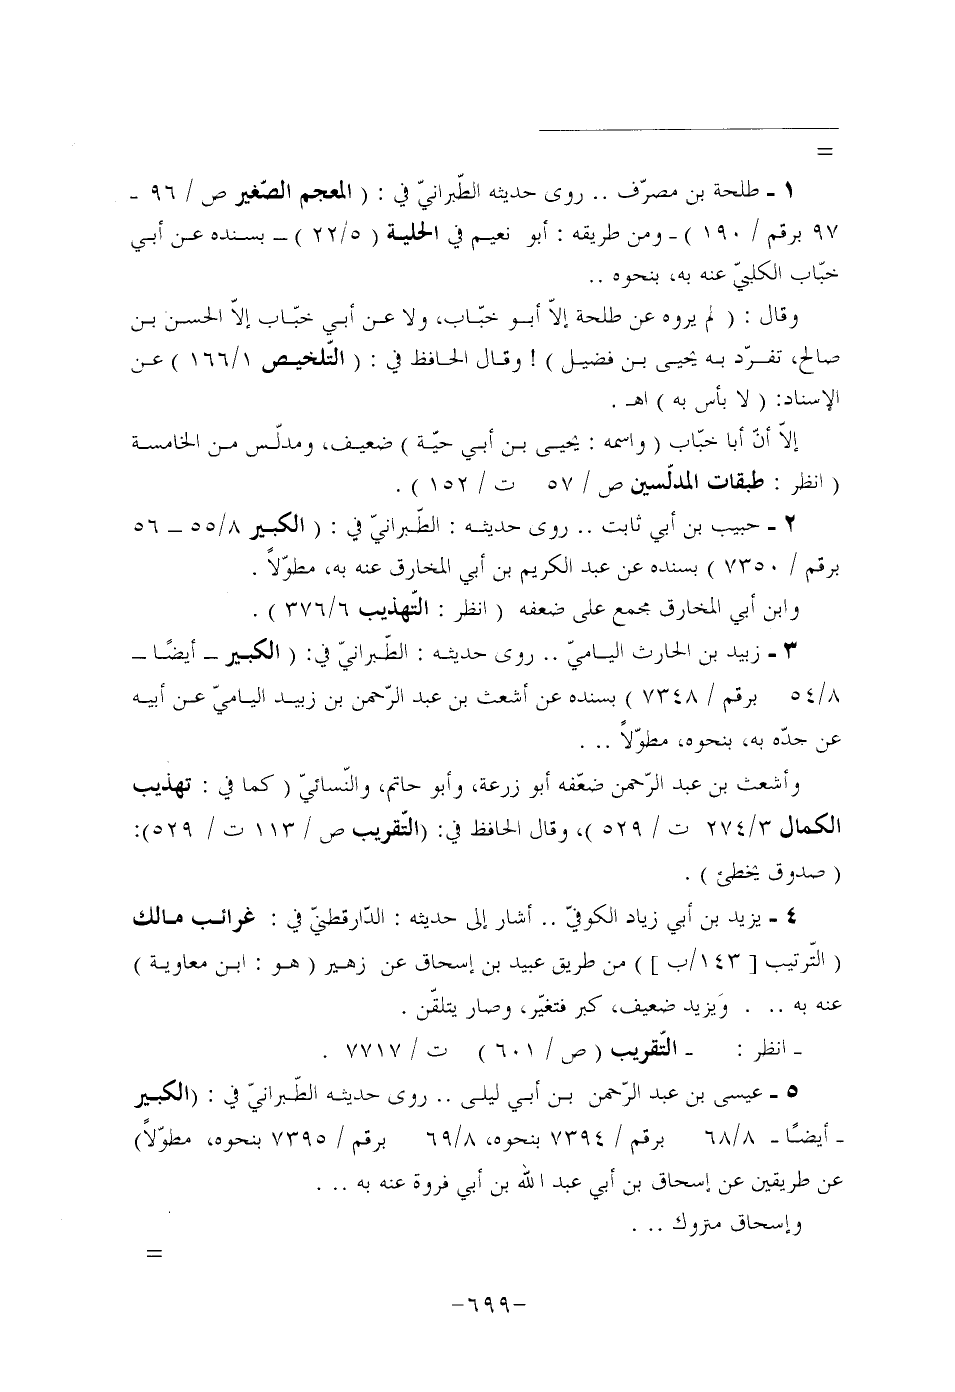 =
١ - طلحة بن مصرّف .. روى حديثه الطّبرانيّ في : ( المعجم الصّغير ص / ٩٦ -
٩٧ برقم / ١٩٠ ) - ومن طريقه : أبو نعيم في الحلية ( ٢٢/٥ ) – بسنده عن أبي
خبّاب الكلبيّ عنه به، بنحوه ..
وقال : ( لم يروه عن طلحة إلاّ أبو خبّاب، ولا عن أبي خبّاب إلاّ الحسن بن
صالح، تفرّد به يحيى بن فضيل ) ! وقال الحافظ في : ( التّلخيص ١٦٦/١ ) عن
الإسناد: ( لا بأس به ) اهـ .
إلاّ أنّ أبا خبّاب ( واسمه : يحيى بن أبي حيّة ) ضعيف، ومدلّس من الخامسة
( انظر : طبقات المدلّسين ص / ٥٧ ت / ١٥٢ ) .
٢ - حبيب بن أبي ثابت .. روى حديثه : الطّبرانيّ في : ( الكبير ٥٥/٨ – ٥٦
برقم / ٧٣٥٠ ) بسنده عن عبد الكريم بن أبي المخارق عنه به، مطوّلاً .
وابن أبي المخارق مجمع على ضعفه ( انظر : التّهذيب ٣٧٦/٦ ) .
٣ - زبيد بن الحارث الياميّ .. روى حديثه : الطّبرانيّ في: ( الكبير – أيضًا –
٥٤/٨ برقم / ٧٣٤٨ ) بسنده عن أشعث بن عبد الرّحمن بن زبيد الياميّ عن أبيه
عن جدّه به، بنحوه، مطوّلاً .. .
وأشعث بن عبد الرّحمن ضعّفه أبو زرعة، وأبو حاتم، والنّسائيّ ( كما في : تهذيب
الكمال ٢٧٤/٣ ت / ٥٢٩ )، وقال الحافظ في: (التّقريب ص / ١١٣ ت / ٥٢٩):
( صدوق يخطئ ) .
٤ - يزيد بن أبي زياد الكوفيّ .. أشار إلى حديثه : الدّارقطنيّ في : غرائب مالك
( التّرتيب [ ١٤٣/ب ] ) من طريق عبيد بن إسحاق عن زهير ( هو : ابن معاوية )
عنه به .. . ويزيد ضعيف، كبر فتغيّر، وصار يتلقّن .
- انظر : - التّقريب ( ص / ٦٠١ ) ت / ٧٧١٧ .
٥ - عيسى بن عبد الرّحمن بن أبي ليلى .. روى حديثه الطّبرانيّ في : (الكبير
- أيضًا - ٦٨/٨ برقم / ٧٣٩٤ بنحوه، ٦٩/٨ برقم / ٧٣٩٥ بنحوه، مطوّلاً)
عن طريقين عن إسحاق بن أبي عبد الله بن أبي فروة عنه به .. .
وإسحاق متروك .. .
=
-٦٩٩-